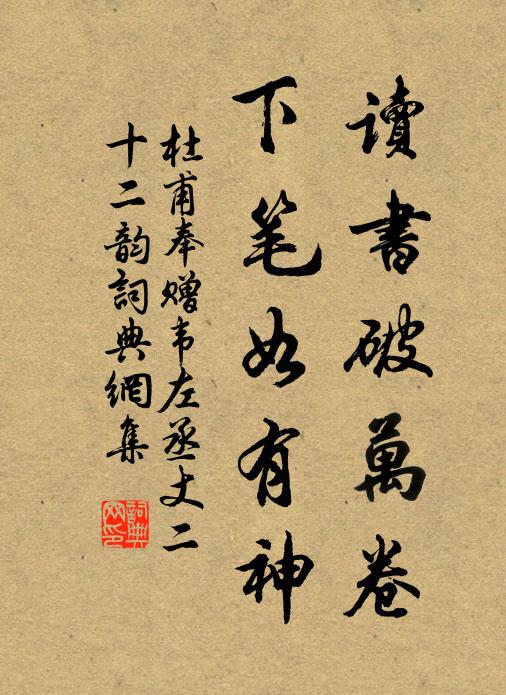 讀書破萬卷
下笔如有神
杜甫奉赠韦左丞丈二
十二韵詞典網集
詞典
网印